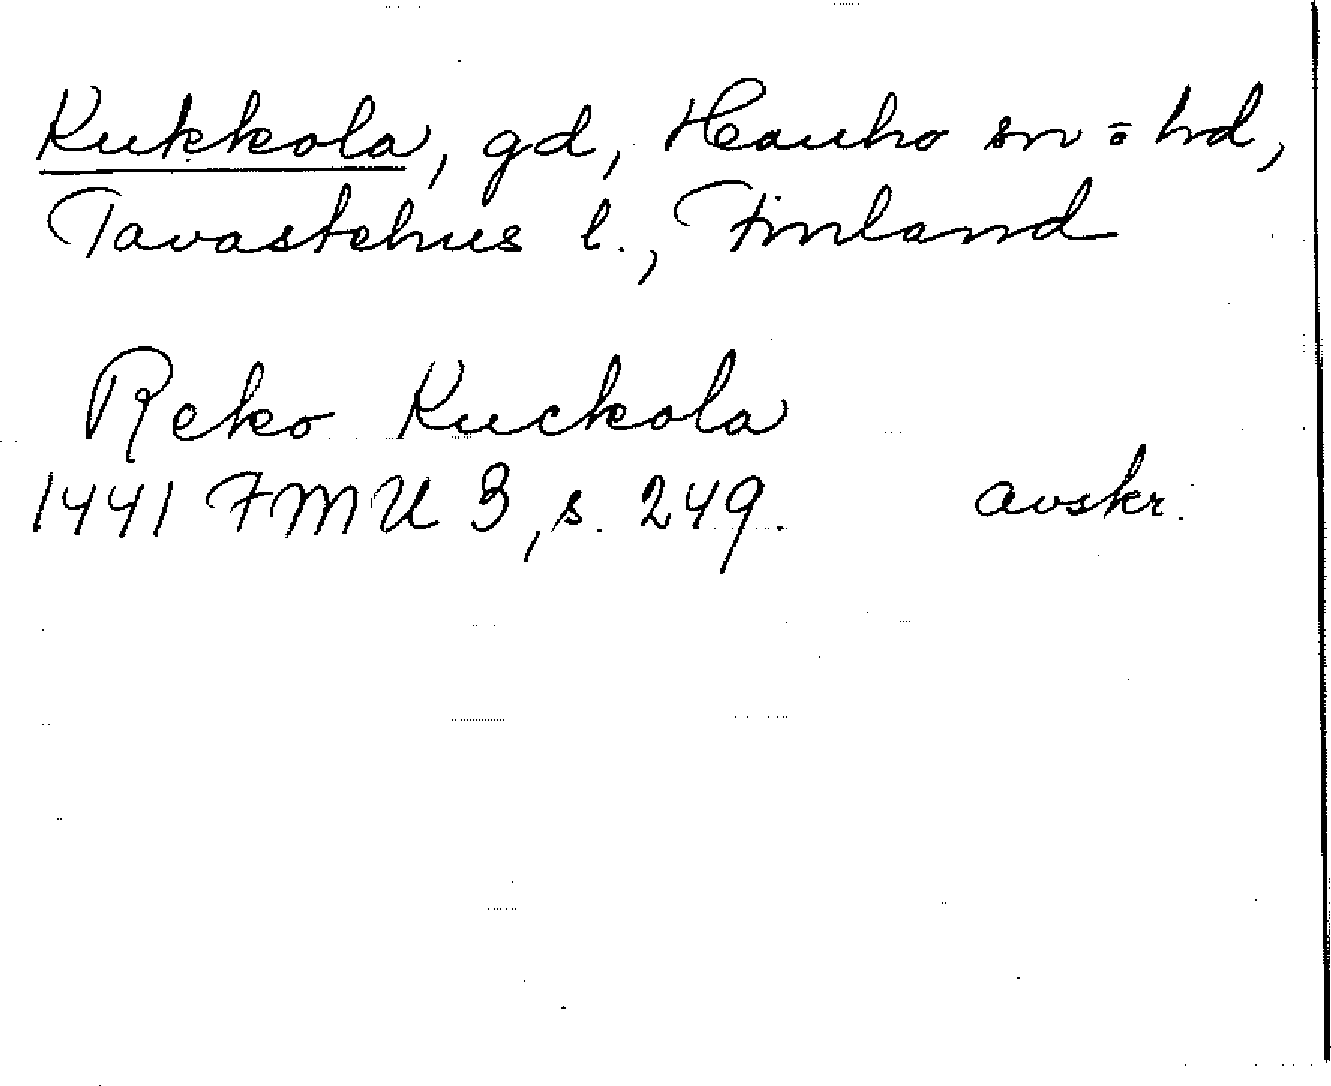 Kukkola, gd, Hauho sn = hd,
Tavastehus l., Finland
Reko Kuckola
1441 FMU 3, s. 249. avskr.